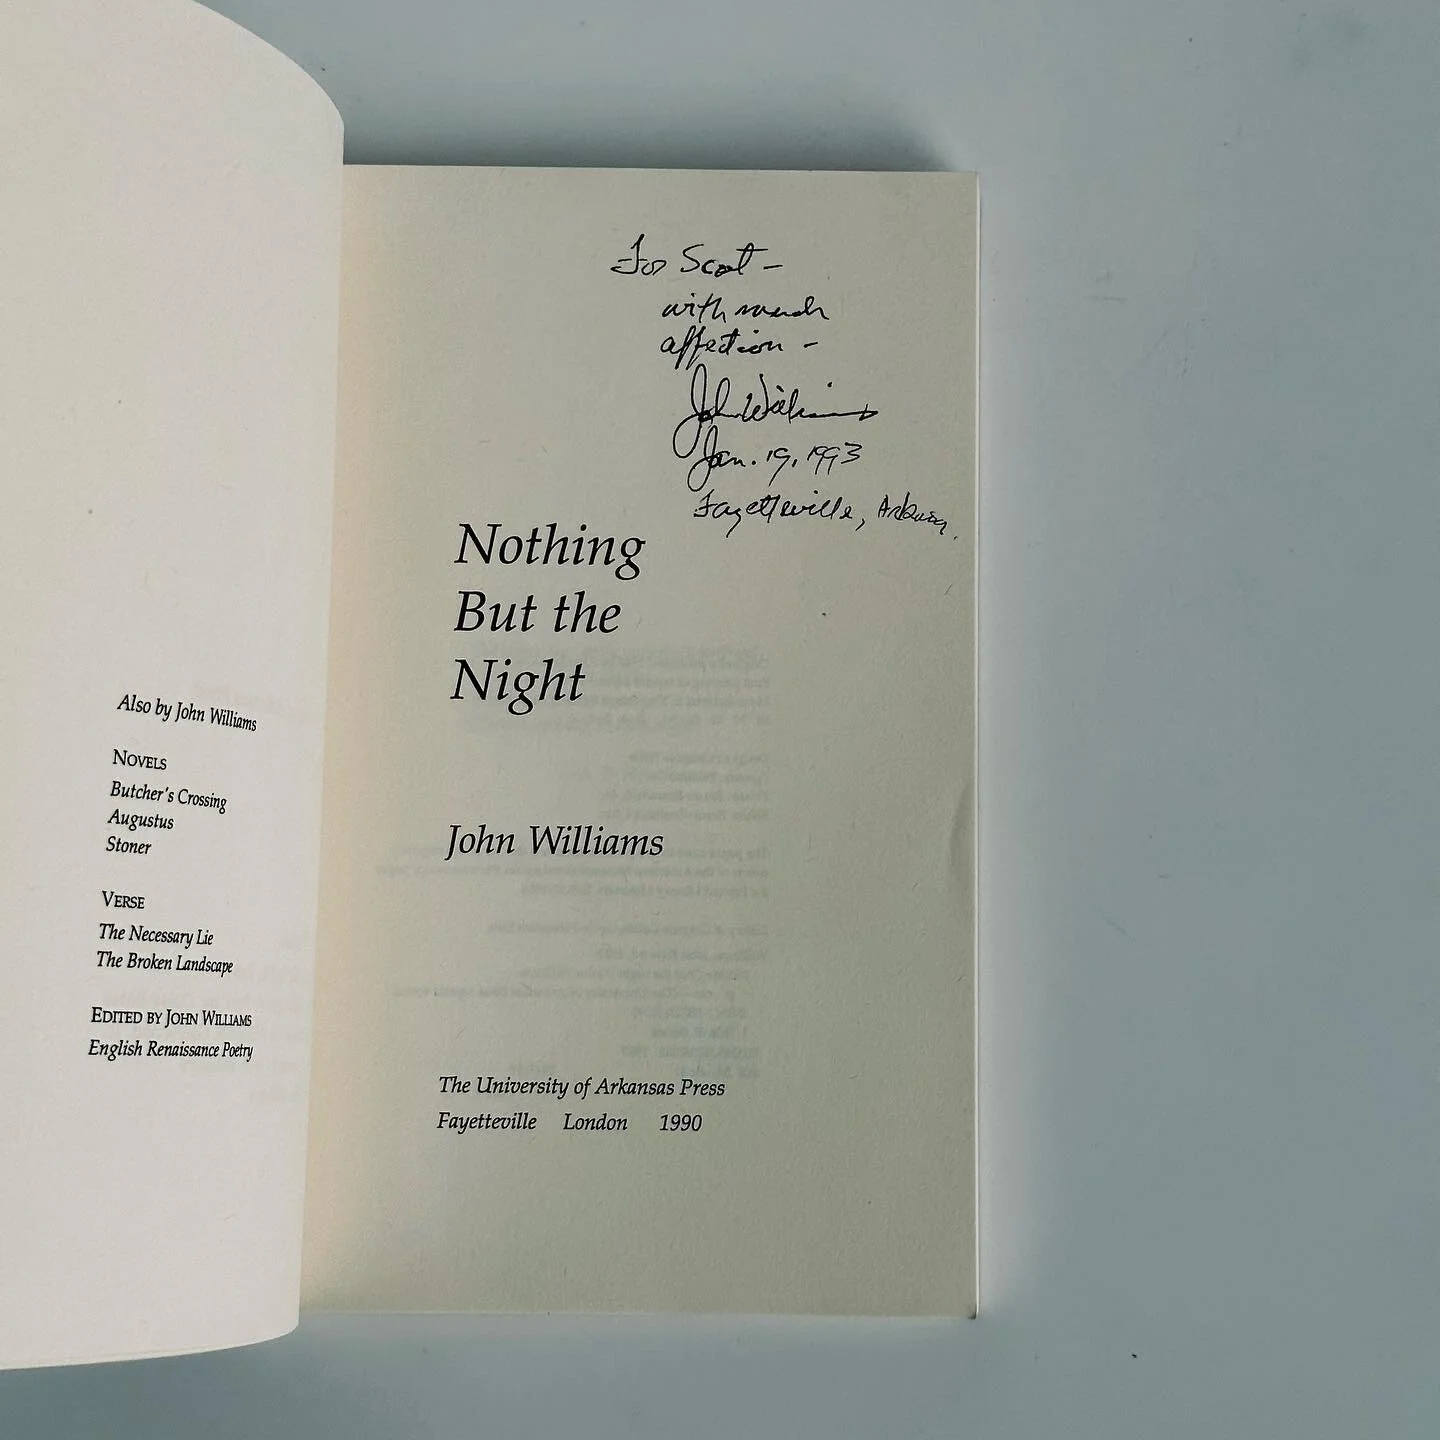 Also by John Williams
NOVELS
Butcher's Crossing
Augustus
Stoner
VERSE
The Necessary Lie
The Broken Landscape
EDITED BY JOHN WILLIAMS
English Renaissance Poetry
For Scot –
with much
affection –
John Williams
Jan. 19, 1993
Fayetteville, Arkansas.
Nothing
But the
Night
John Williams
The University of Arkansas Press
Fayetteville London 1990